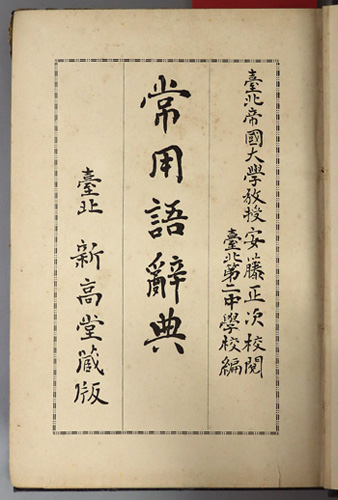 臺北帝國大學教授安藤正次校閱
臺北第二中學校編
常用語辭典
臺北 新高堂蔵版